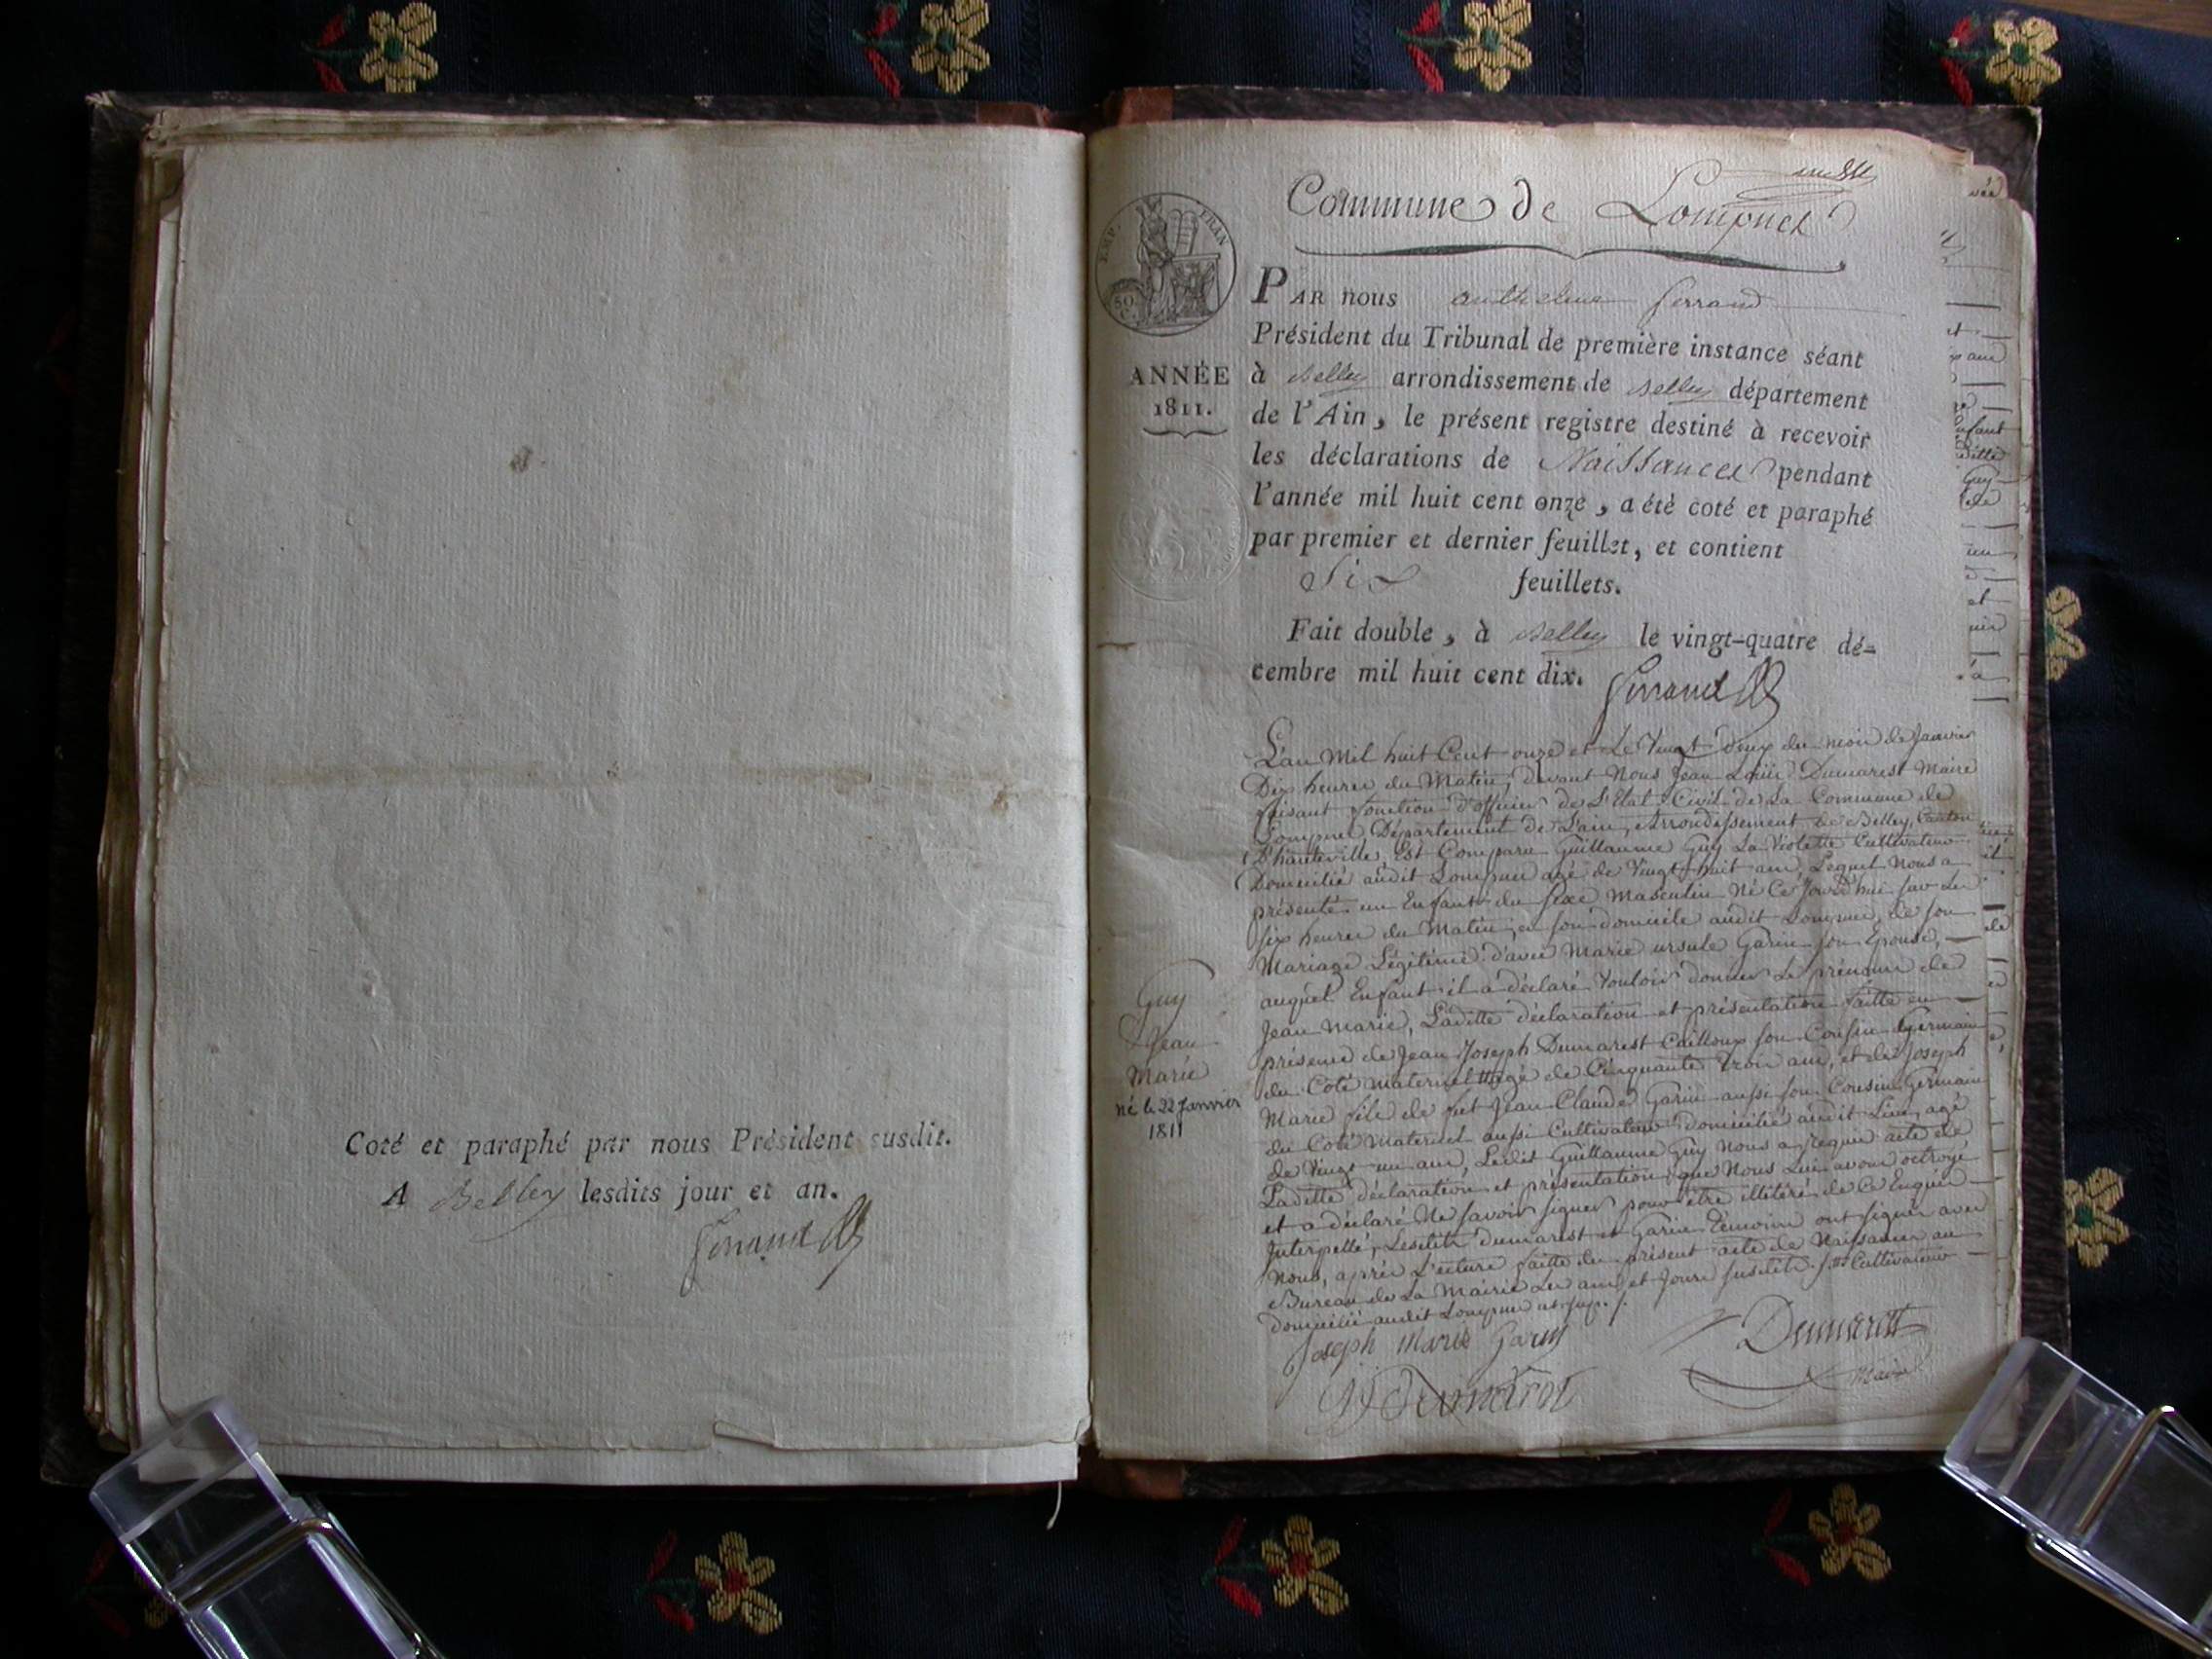 Coté et paraphé par nous Président susdit.
A Belley lesdits jour et an.
Ferrand
Commune de Lompnes
EMP. FRAN
50 C.
ANNÉE
1811.
PAR nous anthelme ferrand
Président du Tribunal de première instance séant
à Belley arrondissement de Belley département
de l'Ain, le présent registre destiné à recevoir
les déclarations de Naissances pendant
l'année mil huit cent onze, a été coté et paraphé
par premier et dernier feuillet, et contient
Six feuillets.
Fait double, à Belley le vingt-quatre dé=
cembre mil huit cent dix. Ferrand
Guy
Jean
Marie
né le 22 Janvier
1811
L'an Mil huit Cent onze et Le Vingt Deux du mois de Janvier
Dix heures du Matin, devant Nous Jean Louis Dumarest Maire
faisant fonction d'officier de L'Etat Civil de La Commune de
Lompnes Département de L'ain, Arrondissement de Belley, Canton
D'hauteville, Est Comparu Guillaume Guy La Violette Cultivateur
Domicilié audit Lompnes agé de Vingt huit ans, Lequel Nous a
présenté un Enfant du Sexe Masculin Né Ce Jourd'hui sur les
six heures du Matin, en son domicile audit Lompnes, de son
Mariage Légitime d'avec Marie ursule Garin son Epouse,
auquel Enfant il a déclaré Vouloir donner Le prénom de
Jean Marie, Laditte déclaration et présentation faitte en
présence de Jean Joseph Dumarest Cailloux son Cousin Germain
du Coté Maternel agé de Cinquante trois ans, et de Joseph
Marie fils de fut Jean Claude Garin aussi son Cousin Germain
du Coté Maternel aussi Cultivateur domicilié audit Lieu, agé
de Vingt un ans, Ledit Guillaume Guy nous a requis acte de
Laditte déclaration et présentation que Nous Lui avons octroyé
et a déclaré Ne savoir signer pour être illitéré de Ce Enquis
Interpellé, Lesdits dumarest et Garin témoins ont signés avec
Nous, après Lecture faitte du présent acte de Naissance au
Bureau de La Mairie Les an et Jours susdits. Cultivateur
domicilié audit Lompnes
Joseph Marie Garin
Dumarest
Maire
JJ Dumarest